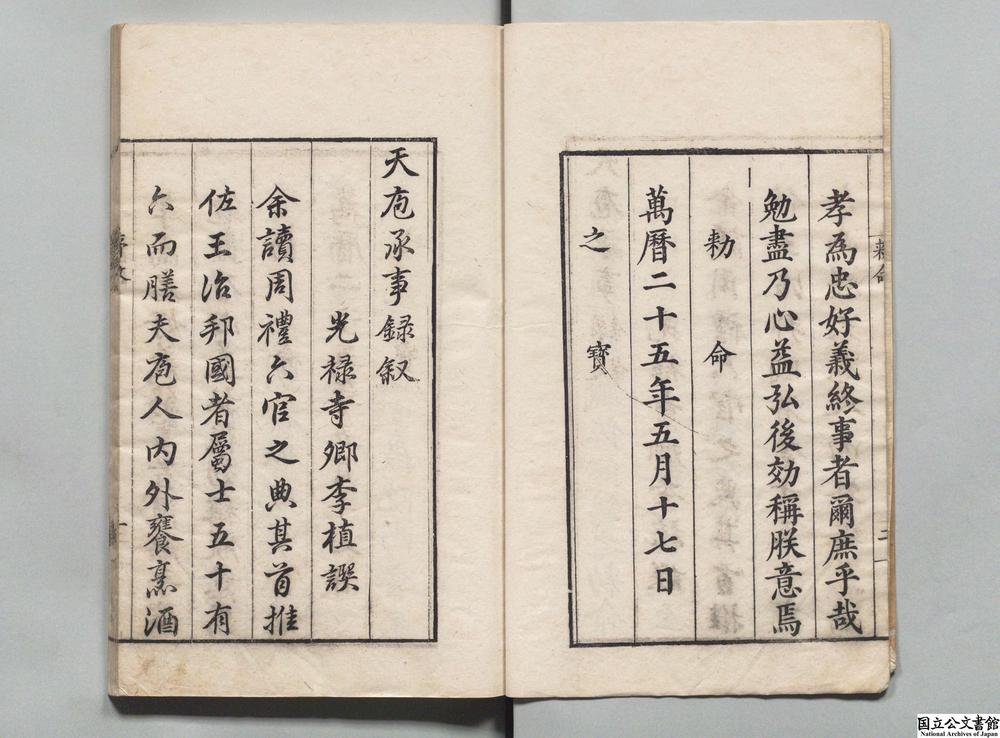 孝為忠好義終事者爾庶乎哉
勉盡乃心益弘後効稱朕意焉
勑命
萬曆二十五年五月十七日
之寳
天庖承事録叙
光禄寺卿李植譔
余讀周禮六官之典其首推
佐王治邦國者屬士五十有
六而膳夫庖人内外饔烹酒
国立公文書館
National Archives of Japan